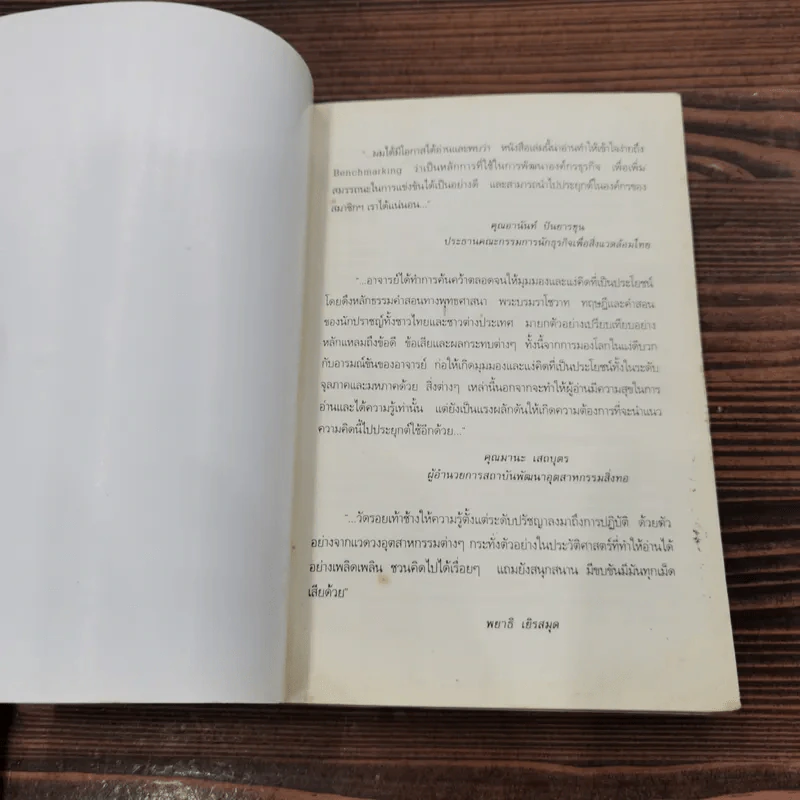 "...ผมได้มีโอกาสได้อ่านและพบว่า หนังสือเล่มนี้น่าอ่านทำให้เข้าใจง่ายถึง
Benchmarking ว่าเป็นหลักการที่ใช้ในการพัฒนาองค์กรธุรกิจ เพื่อเพิ่ม
สมรรถนะในการแข่งขันได้เป็นอย่างดี และสามารถนำไปประยุกต์ในองค์กรของ
สมาชิกฯ เราได้แน่นอน..."
คุณอานันท์ ปันยารชุน
ประธานคณะกรรมการนักธุรกิจเพื่อสิ่งแวดล้อมไทย
"...อาจารย์ได้ทำการค้นคว้าตลอดจนให้มุมมองและแง่คิดที่เป็นประโยชน์
โดยดึงหลักธรรมคำสอนทางพุทธศาสนา พระบรมราโชวาท ทฤษฎีและคำสอน
ของนักปราชญ์ทั้งชาวไทยและชาวต่างประเทศ มายกตัวอย่างเปรียบเทียบอย่าง
หลักแหลมถึงข้อดี ข้อเสียและผลกระทบต่างๆ ทั้งนี้จากการมองโลกในแง่ดีบวก
กับอารมณ์ขันของอาจารย์ ก่อให้เกิดมุมมองและแง่คิดที่เป็นประโยชน์ทั้งในระดับ
จุลภาคและมหภาคด้วย สิ่งต่างๆ เหล่านี้นอกจากจะทำให้ผู้อ่านมีความสุขในการ
อ่านและได้ความรู้เท่านั้น แต่ยังเป็นแรงผลักดันให้เกิดความต้องการที่จะนำแนว
ความคิดนี้ไปประยุกต์ใช้อีกด้วย..."
คุณมานะ เสถบุตร
ผู้อำนวยการสถาบันพัฒนาอุตสาหกรรมสิ่งทอ
"...วัดรอยเท้าช้างให้ความรู้ตั้งแต่ระดับปรัชญาลงมาถึงการปฏิบัติ ด้วยตัว
อย่างจากแวดวงอุตสาหกรรมต่างๆ กระทั่งตัวอย่างในประวัติศาสตร์ที่ทำให้อ่านได้
อย่างเพลิดเพลิน ชวนคิดไปได้เรื่อยๆ แถมยังสนุกสนาน มีขบขันมีมันทุกเม็ด
เสียด้วย"
พยาธิ เยิรสมุด